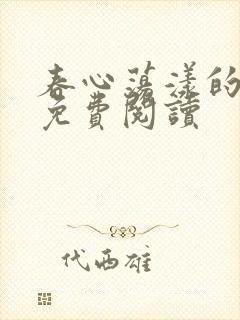 春心荡漾的
免費閱讀
代西雄